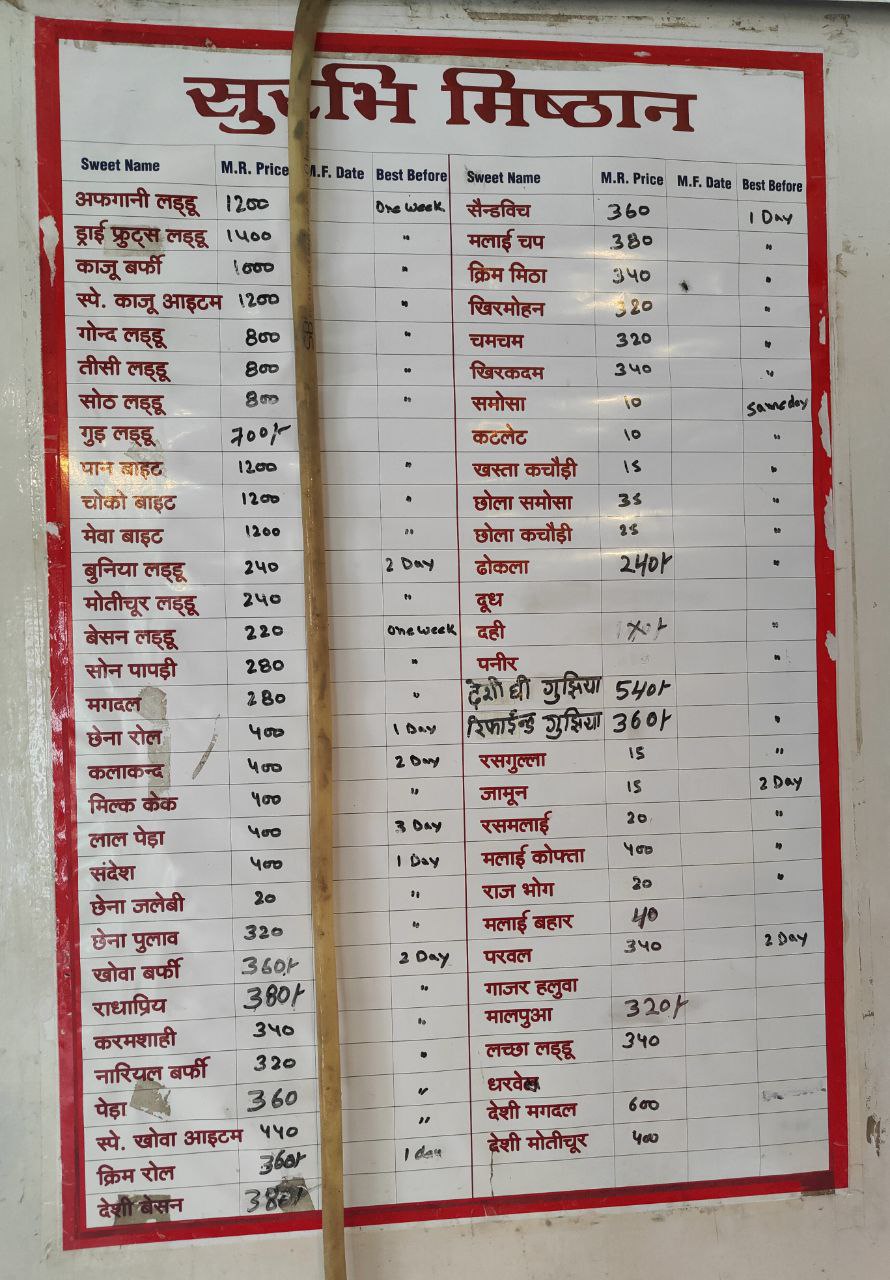 सुरभि मिष्ठान
Sweet Name M.R. Price M.F. Date Best Before
अफगानी लड्डू 1200 One Week
ड्राई फ्रुट्स लड्डू 1400 "
काजू बर्फी 1000 "
स्पे. काजू आइटम 1200 "
गोन्द लड्डू 800 "
तीसी लड्डू 800 "
सोठ लड्डू 800 "
गुड़ लड्डू 700/-
पान बाइट 1200 "
चोको बाइट 1200 "
मेवा बाइट 1200 "
बुनिया लड्डू 240 2 Day
मोतीचूर लड्डू 240 "
बेसन लड्डू 220 One Week
सोन पापड़ी 280 "
मगदल 280 "
छेना रोल 400 1 Day
कलाकन्द 400 2 Day
मिल्क केक 400 "
लाल पेड़ा 400 3 Day
संदेश 400 1 Day
छेना जलेबी 20 "
छेना पुलाव 320 "
खोवा बर्फी 360/- 2 Day
राधाप्रिय 380/- "
करमशाही 340 "
नारियल बर्फी 320 "
पेड़ा 360 "
स्पे. खोवा आइटम 440 "
क्रिम रोल 360/- 1 day
देशी बेसन 380/-
Sweet Name M.R. Price M.F. Date Best Before
सैन्डविच 360 1 Day
मलाई चप 380 "
क्रिम मिठा 340 "
खिरमोहन 320 "
चमचम 320 "
खिरकदम 340 "
समोसा 10 Same day
कटलेट 10 "
खस्ता कचौड़ी 15 "
छोला समोसा 35 "
छोला कचौड़ी 25 "
ढोकला 240/- "
दूध
दही "
पनीर "
देशी घी गुझिया 540/-
रिफाईन्ड गुझिया 360/- "
रसगुल्ला 15 "
जामून 15 2 Day
रसमलाई 20 "
मलाई कोफ्ता 400 "
राज भोग 20 "
मलाई बहार 40
परवल 340 2 Day
गाजर हलुवा
मालपुआ 320/-
लच्छा लड्डू 340
देशी मगदल 600
देशी मोतीचूर 400